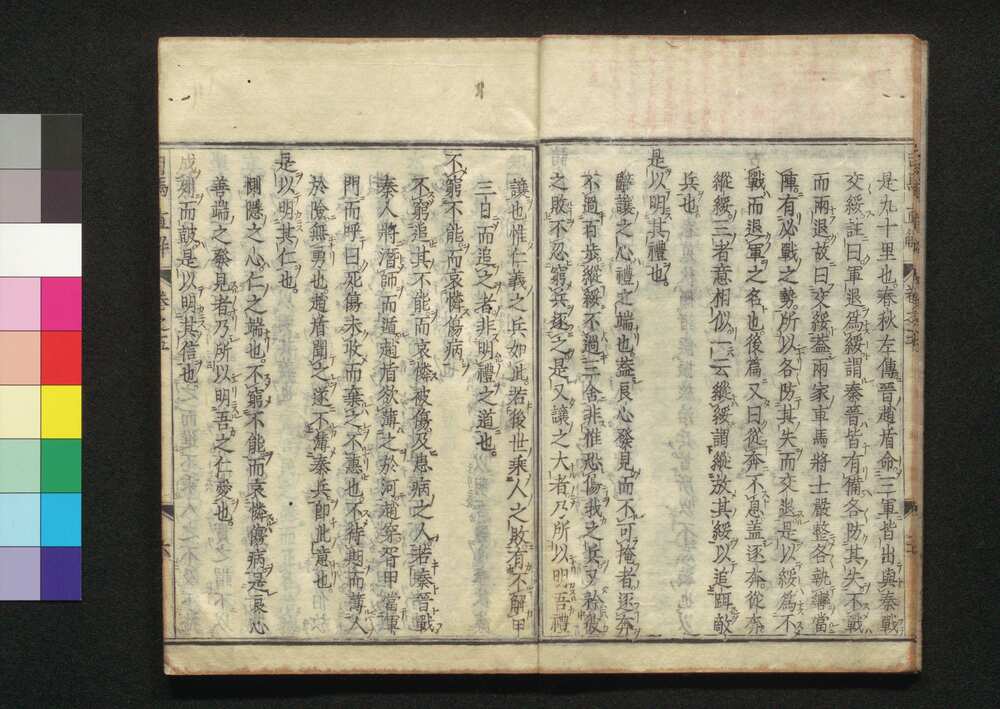 是九十里也春秋左傳晉趙盾命三軍皆出與秦戰
交綏註曰軍退爲綏謂秦晉皆有備各防其失不戰
而兩退故曰交綏蓋兩家車馬將士嚴整各執轡當
陣有必戰之勢所以各防其失而交退是以綏爲不
戰而退軍之名也後篇又曰從奔不息蓋逐奔從奔
縱綏三者意相似一云縱綏謂縱放其綏以追躡敵
兵也
是以明其禮也
辭讓之心禮之端也蓋良心發見而不可掩者逐奔
不過百步縱綏不過三舍非惟恐傷我之兵又矜彼
之敗不忍窮兵逐之是又讓之大者乃所以明吾禮
讓也惟仁義之兵如此若後世乘人之敗有不解甲
三日而追之者非明禮之道也
不窮不能而哀憐傷病
不窮追其不能而哀憐被傷及患病之人若秦晉戰
秦人將潛師而遁趙盾欲薄之於河趙穿胥甲當軍
門而呼曰死傷未收而棄之不惠也不待期而薄人
於險無勇也趙盾聞之遂不薄秦兵卽此意也
是以明其仁也
惻隱之心仁之端也不窮不能而哀憐傷病是良心
善端之發見者乃所以明吾之仁愛也
成列而鼓是以明其信也